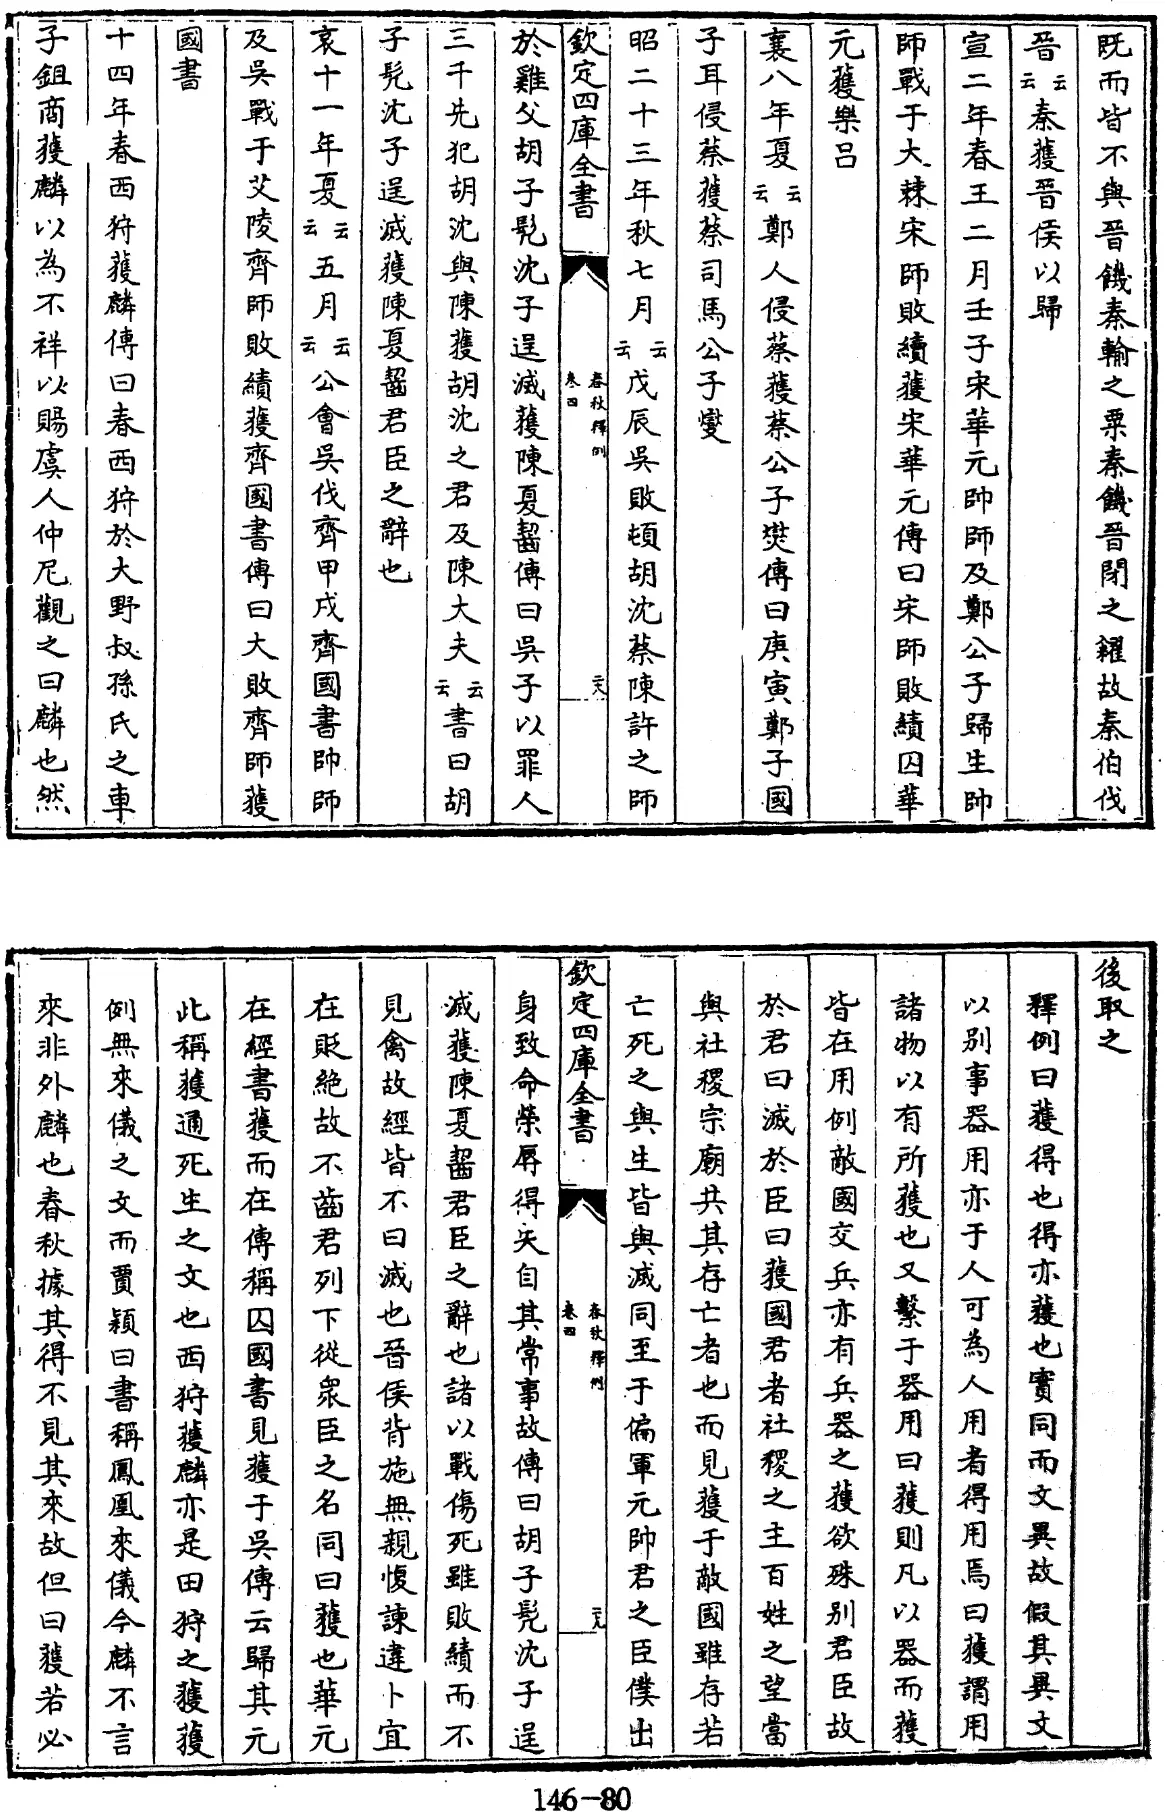 既而皆不與晉饑秦輸之粟秦饑晉閉之糴故秦伯伐
晉云云秦獲晉侯以歸
宣二年春王二月壬子宋華元帥師及鄭公子歸生帥
師戰于大棘宋師敗績獲宋華元傳曰宋師敗績囚華
元獲樂呂
襄八年夏云云鄭人侵蔡獲蔡公子爕傳曰庚寅鄭子國
子耳侵蔡獲蔡司馬公子燮
昭二十三年秋七月云云戊辰吳敗頓胡沈蔡陳許之師
欽定四庫全書
春秋釋例
卷四
二六
於雞父胡子髡沈子逞滅獲陳夏齧傳曰吳子以罪人
三千先犯胡沈與陳獲胡沈之君及陳大夫云云書曰胡
子髡沈子逞滅獲陳夏齧君臣之辭也
哀十一年夏云云五月云云公會吳伐齊甲戌齊國書帥師
及吳戰于艾陵齊師敗績獲齊國書傳曰大敗齊師獲
國書
十四年春西狩獲麟傳曰春西狩於大野叔孫氏之車
子鉏商獲麟以為不祥以賜虞人仲尼觀之曰麟也然
後取之
釋例曰獲得也得亦獲也實同而文異故假其異文
以別事器用亦于人可為人用者得用焉曰獲謂用
諸物以有所獲也又繫于器用曰獲則凡以器而獲
皆在用例敵國交兵亦有兵器之獲欲殊別君臣故
於君曰滅於臣曰獲國君者社稷之主百姓之望當
與社稷宗廟共其存亡者也而見獲于敵國雖存若
亡死之與生皆與滅同至于偏軍元帥君之臣僕出
欽定四庫全書
春秋釋例
卷四
二九
身致命榮辱得失自其常事故傳曰胡子髡沈子逞
滅獲陳夏齧君臣之辭也諸以戰傷死雖敗績而不
見禽故經皆不曰滅也晉侯背施無親愎諫違卜宜
在貶絶故不齒君列下從衆臣之名同曰獲也華元
在經書獲而在傳稱囚國書見獲于吳傳云歸其元
此稱獲通死生之文也西狩獲麟亦是田狩之獲獲
例無來儀之文而賈穎曰書稱鳳凰來儀今麟不言
來非外麟也春秋據其得不見其來故但曰獲若必
146-80